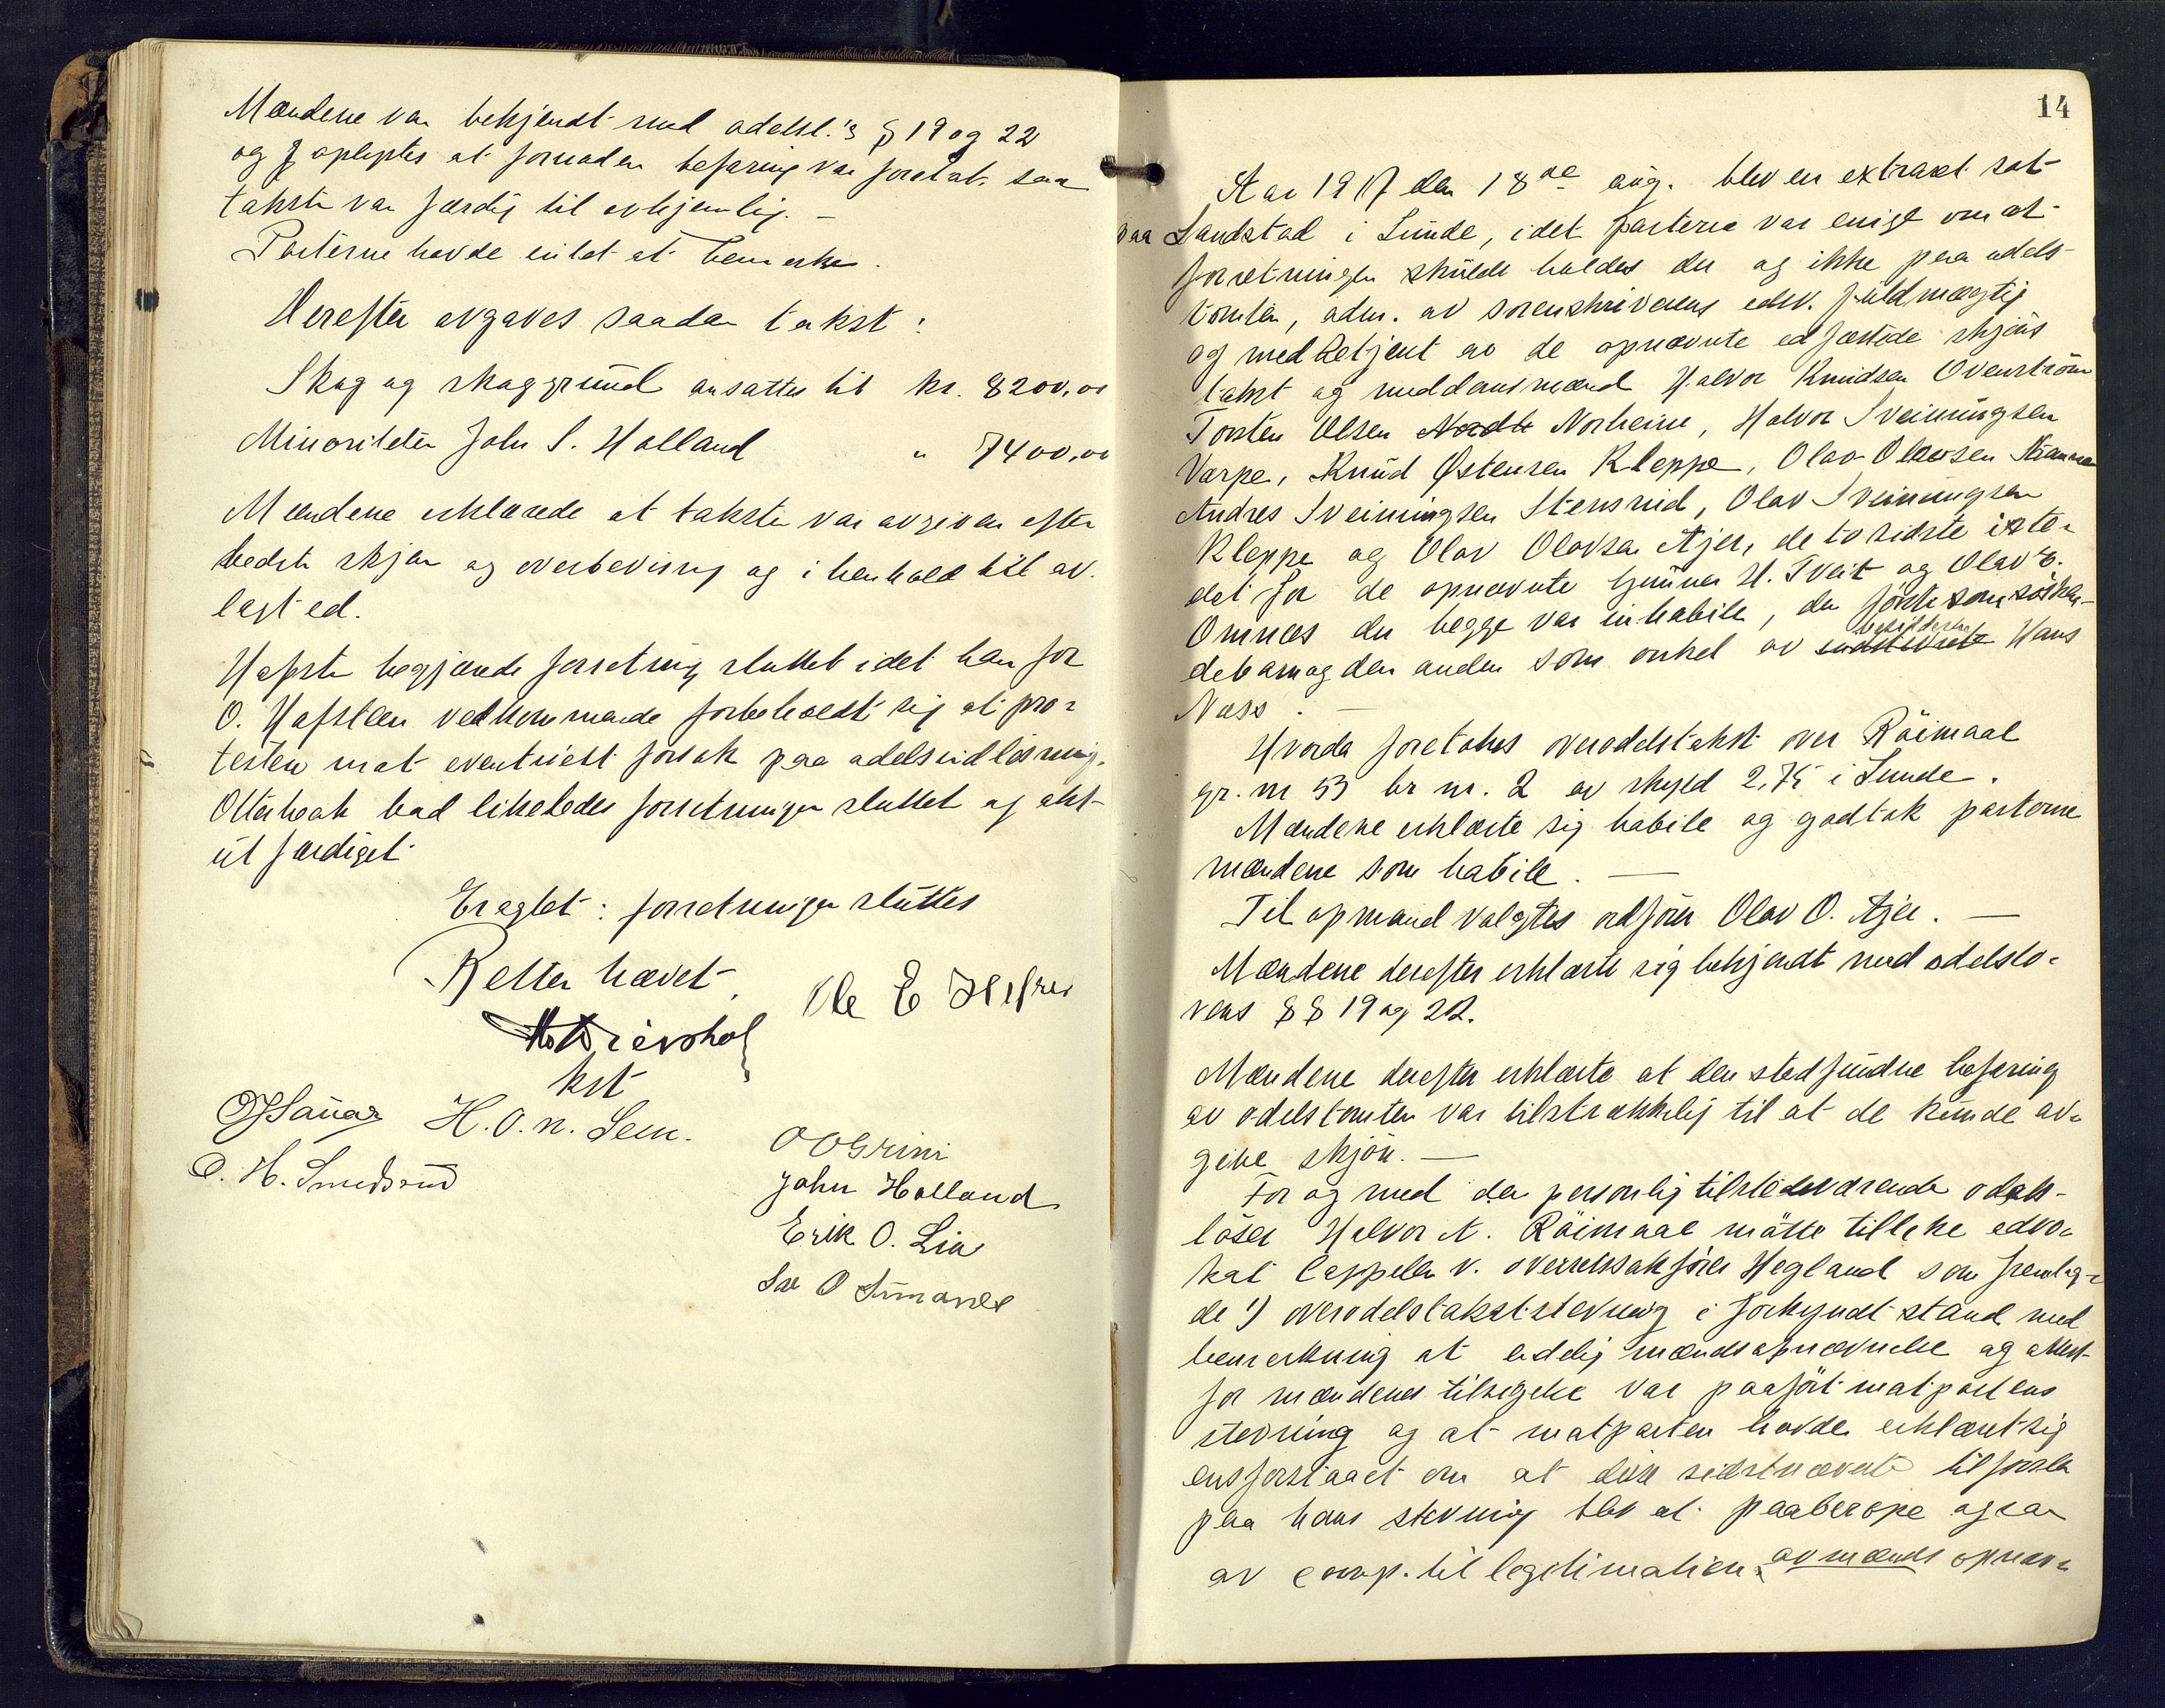 Mændene var bekjendt med odelsl.'s § 19 og 22
og oplystes at fornøden befaring var foretat saa
taksten var færdig til avhjemling. –
Parterne havde intet at bemerke.
Herefter avgaves saadan takst:
Skog og skoggrund ansattes til kr. 8200,00
Minoriteten John S. Holland " 7400,00
Mændene erklærede at taksten var avgiven efter
bedste skjøn og overbevisning og i henhold til av-
lagt ed.
Hafsten begjærede forretning sluttet idet han for
O. Hafsteen vedkommende forbeholdt sig at pro-
testere mot eventuelt forsøk paa odelsindløsning.
Otterbeck bad likeledes forretningen sluttet og akt
utfærdiget
Eragtet: forretningen sluttes
Retten hævet.
kst
H. O. n. Sem.
O. H. Smedsrud
O O Grini
John Holland
Erik O. Lia
14
Aar 1917 den 18de aug. blev en extraret sat
paa Landstad i Lunde, idet parterne var enige om at
forretningen skulde holdes der og ikke paa odels-
tomten, adm. av sorenskriverens edsv. fuldmægtig
og med betjent av de opnævnte edfæstede skjøns
takst og meddomsmænd Halvor Knudsen Ovenstrøm
Torsten Olsen Nordh Norheim, Halvor Sveinungsen
Varpe, Knud Østensen Kleppe, Olav Olavsen
Andres Sveinungsen Stensrud, Olav Sveinungsen
Kleppe og Olav Olavsen Ajer, de to sidste iste-
det for de opnævnte Gunnar H. Tveit og Olav E.
Omnæs der begge var inhabile, den første som søsken-
debarn og den anden som onkel av Hans
Næss. –
Hvorda foretokes overodelstakst over Röimaal
gr. nr 53 br nr. 2 av skyld 2,75 i Lunde.
Mændene erklærte sig habile og godtok parterne
mændene som habile. –
Til opmand valgtes ordfører Olav O. Ajer. –
Mændene derefter erklærte sig bekjendt med odelslo-
vens §§ 19 og 22.
Mændene derefter erklærte at den stedfundne befaring
av odelstomten var tilstrækkelig til at de kunde av-
give skjön. –
For og med den personlig tilstedeværende odels-
löser Halvor N. Röimaal mötte tillike advo-
kat Cappelen v. overretssakförer Hegland som fremlag-
de 1) overodelstakststevning i forkyndt stand med
bemerkning at endelig mændsopnævnelse og attest
for mændenes tilsigelse var paafört motpartens
stevning og at motparten havde erklært sig
ensforstaaet om at disse sidstnævnte tilførsler
paa hans stevning blev at paaberope ogsaa
av comp. til legitimation av mænds opnæv-